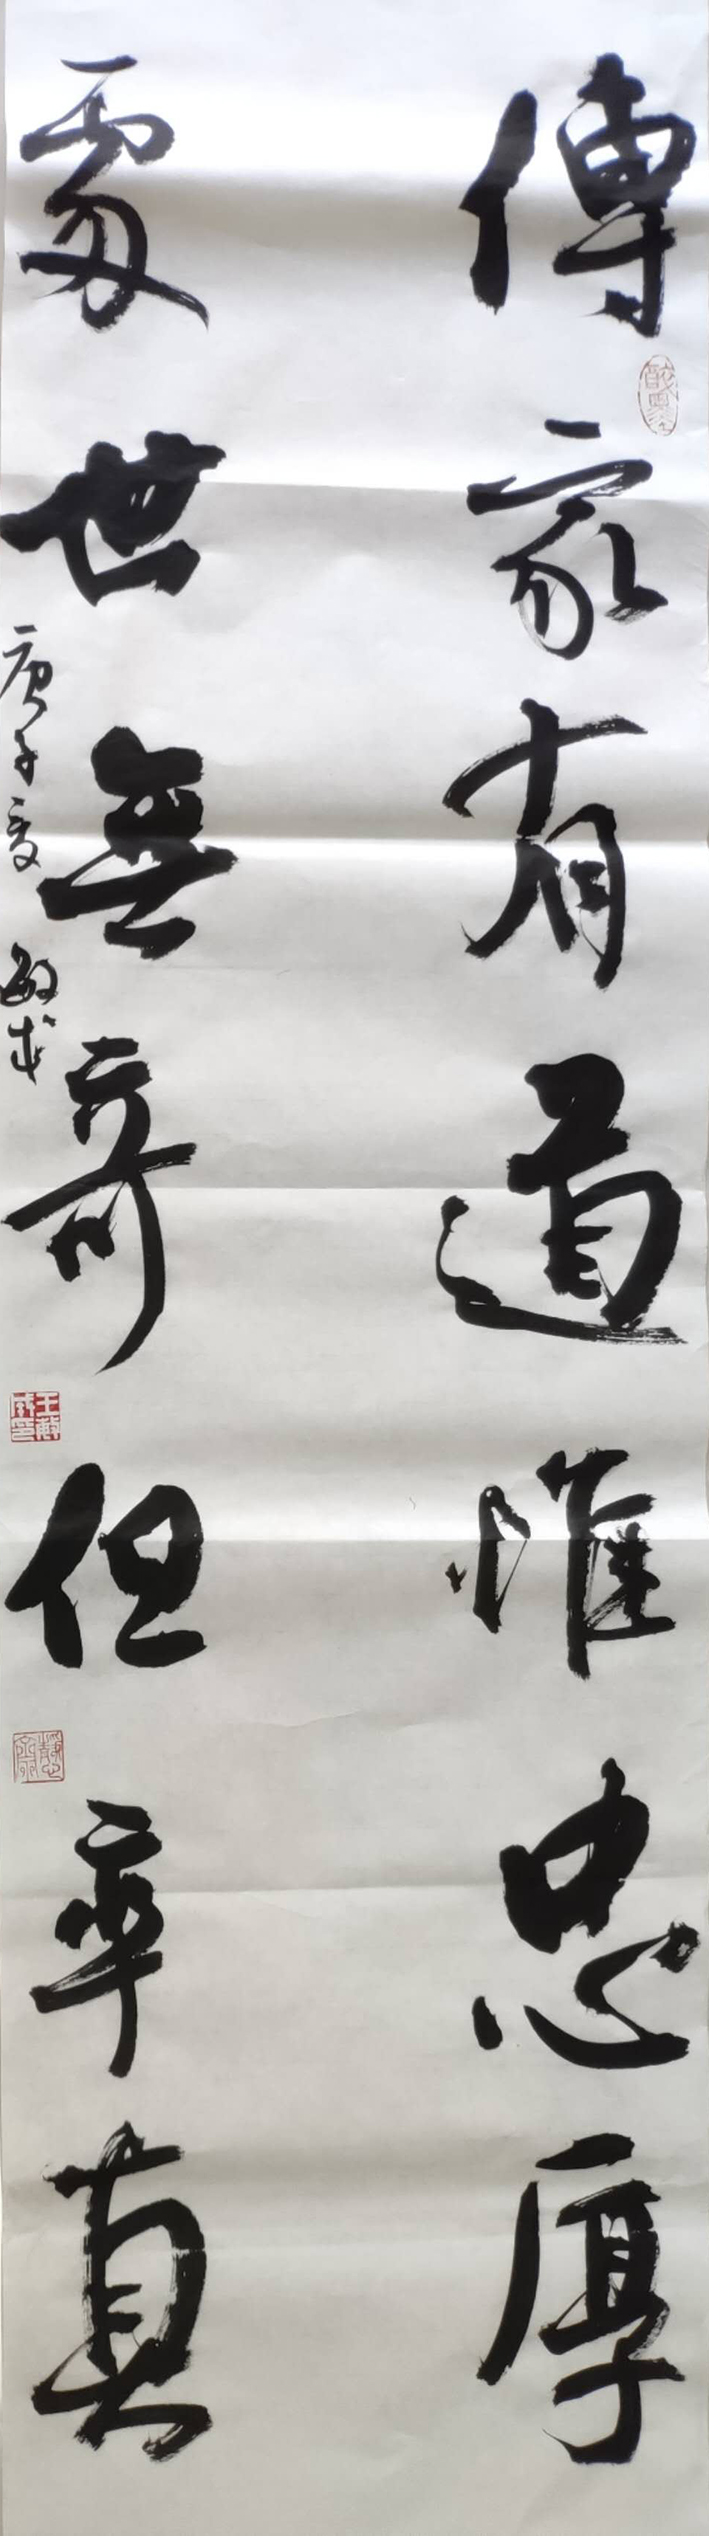 傳家有道惟忠厚
處世無奇但率真
庚子夏 敏成